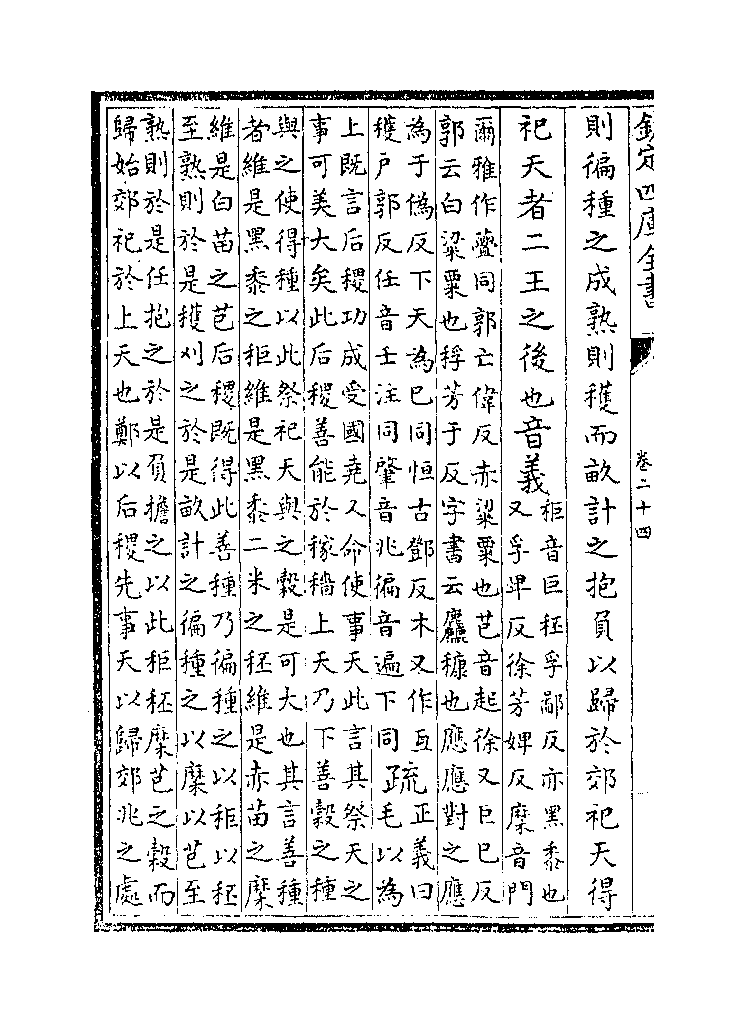 欽定四庫全書
卷二十四
則徧種之成熟則穫而畝計之抱負以歸於郊祀天得
祀天者二王之後也音義
秬音巨秠孚鄙反亦黑黍也
又孚畀反徐芳婢反穈音門
爾雅作虋同郭亡偉反赤粱粟也芑音起徐又巨巳反
郭云白粱粟也稃芳于反字書云麤糠也應應對之應
為于偽反下天為巳同恒古鄧反本又作亙
穫戸郭反任音壬注同肇音兆徧音遍下同
疏
正義曰
毛以為
上既言后稷功成受國堯又命使事天此言其祭天之
事可美大矣此后稷善能於稼穡上天乃下善穀之種
與之使得種以此祭祀天與之穀是可大也其言善種
者維是黑黍之秬維是黑黍二米之秠維是赤苗之穈
維是白苗之芑后稷既得此善種乃徧種之以秬以秠
至熟則於是穫刈之於是畝計之徧種之以穈以芑至
熟則於是任抱之於是負擔之以此秬秠穈芑之穀而
歸始郊祀於上天也鄭以后稷先事天以歸郊兆之處